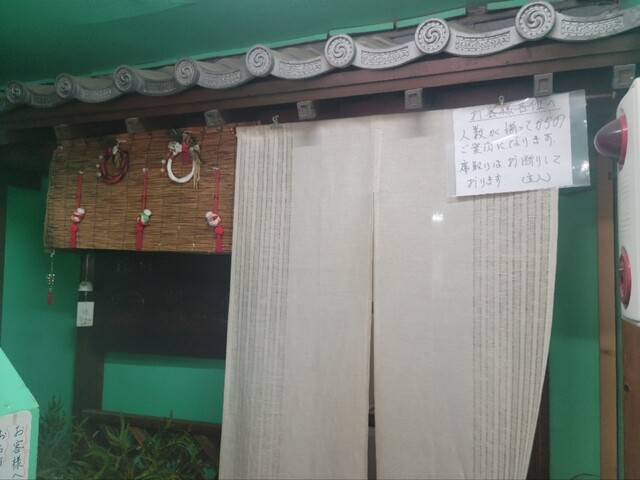 お客様各位へ
人数が揃ってからの
ご案内になります。
席取りはお断りして
おります。(主人)
お客様へ